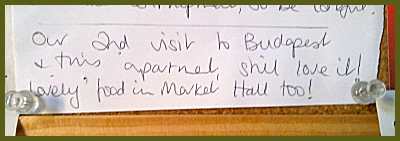 so be
Our 2nd visit to Budapest
& this apartnet, still love it!
lovely food in Market Hall too!